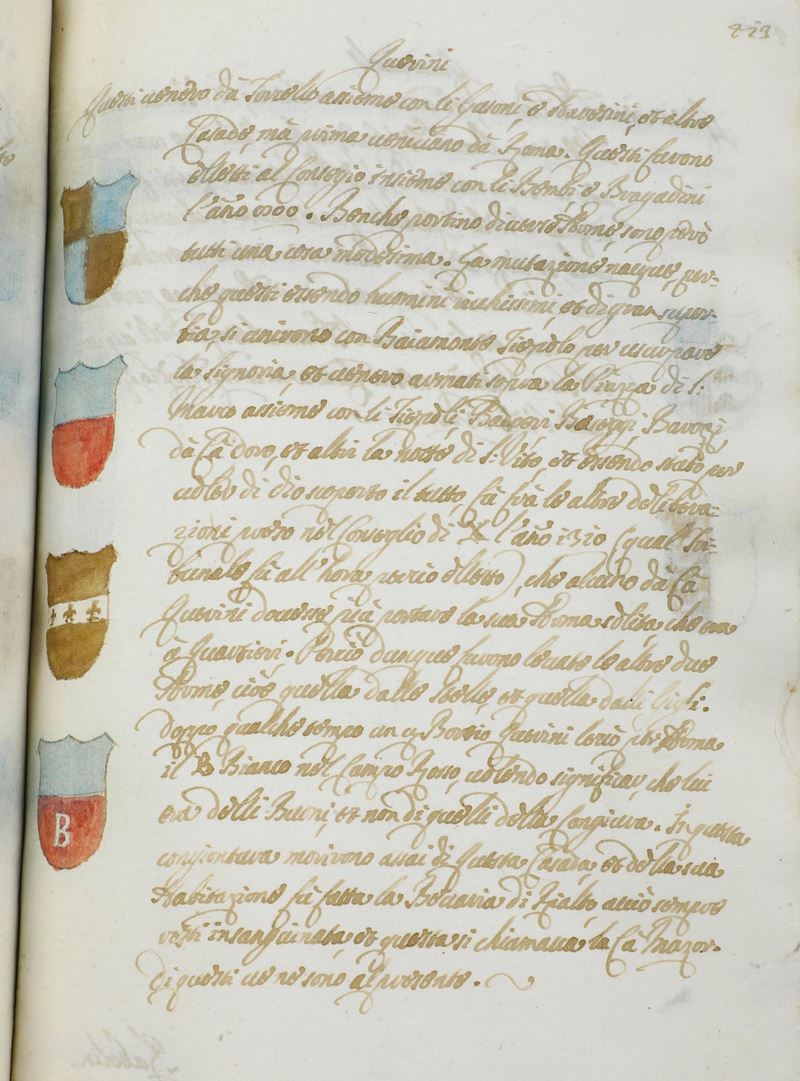 Querini
Questi venero da Torcello assieme con li Gusoni, e Staverini, et altre
Casade, mà prima veniciano dà Roma. Questi furono
elletti al Consegio insieme con li Bembi e Bragadini
l'año . Benche portino diverse Arme, sono però
tutti una cosa modesima. La mutazione nacque, per-
che questi essendo huomini richissimi, et di gran super-
bia, si unirono con Baiamonte Tiepolo per usurpare
la signoria, et venero armati sopra la Piazza di S.
Marco assieme con li Tiepoli, Badoeri, Baseggi, Barozi,
dà Cà doro, et altri la notte di S. Vito, et essendo stato per
voler di dio scoperto il tutto, fù frà le altre delibera-
zioni preso nel Conseglio di X l'año 1310 (qual Tri-
bunale fù all'hora perciò elletto), che alcuno dà Cà
Querini dovesse più portare la sua Arma solita che era
à Quartieri. Perciò dunque furono levate le altre due
Arme, cioè quella dalle stelle, et quella dalli Gigli.
Doppo qualche tempo un q Bortio Querini levò per Arma
il B Bianco nel Campo Rosso, volendo significar, che lui
era delli Buoni, et non di quelli della Congiura. In questa
congiontura morirono assai di questa Casada, et della sua
Habitazione fù fatta la Becaria di Rialto acciò sempre
resti insanguinata, et questa si chiamava la Cà Mazor.
Di questi ve ne sono al presente.
B